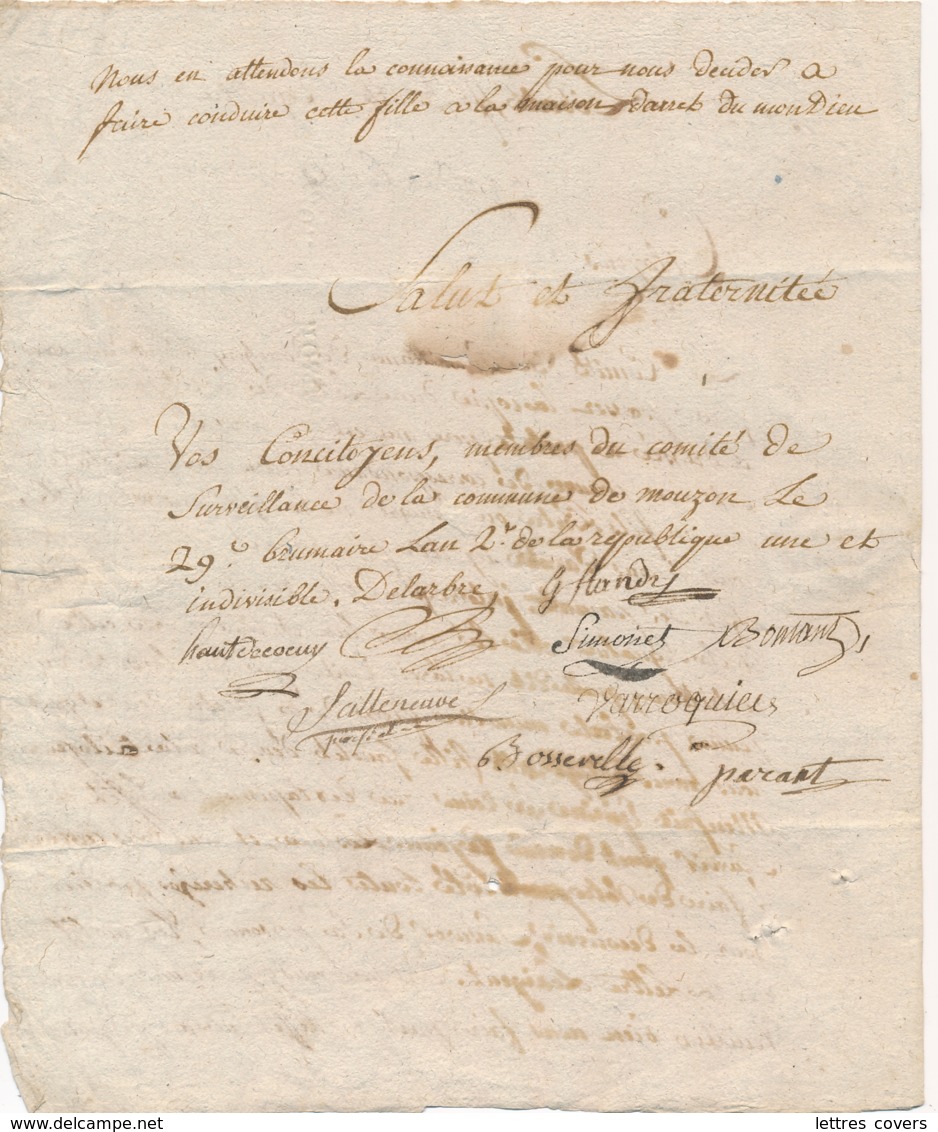 Nous en attendons la connoissance pour nous decider a
faire conduire cette fille a la maison darret du mon Dieu
Salut et fraternitée
Vos Concitoyens, membres du comité de
Surveillance de la commune de mouzon Le
29.e brumaire Lan 2.e de la republique une et
indivisible. Delarbre,
hautdecoeur Simonet
Salleneuve Varroquier
Bosseville. parant
lettres covers